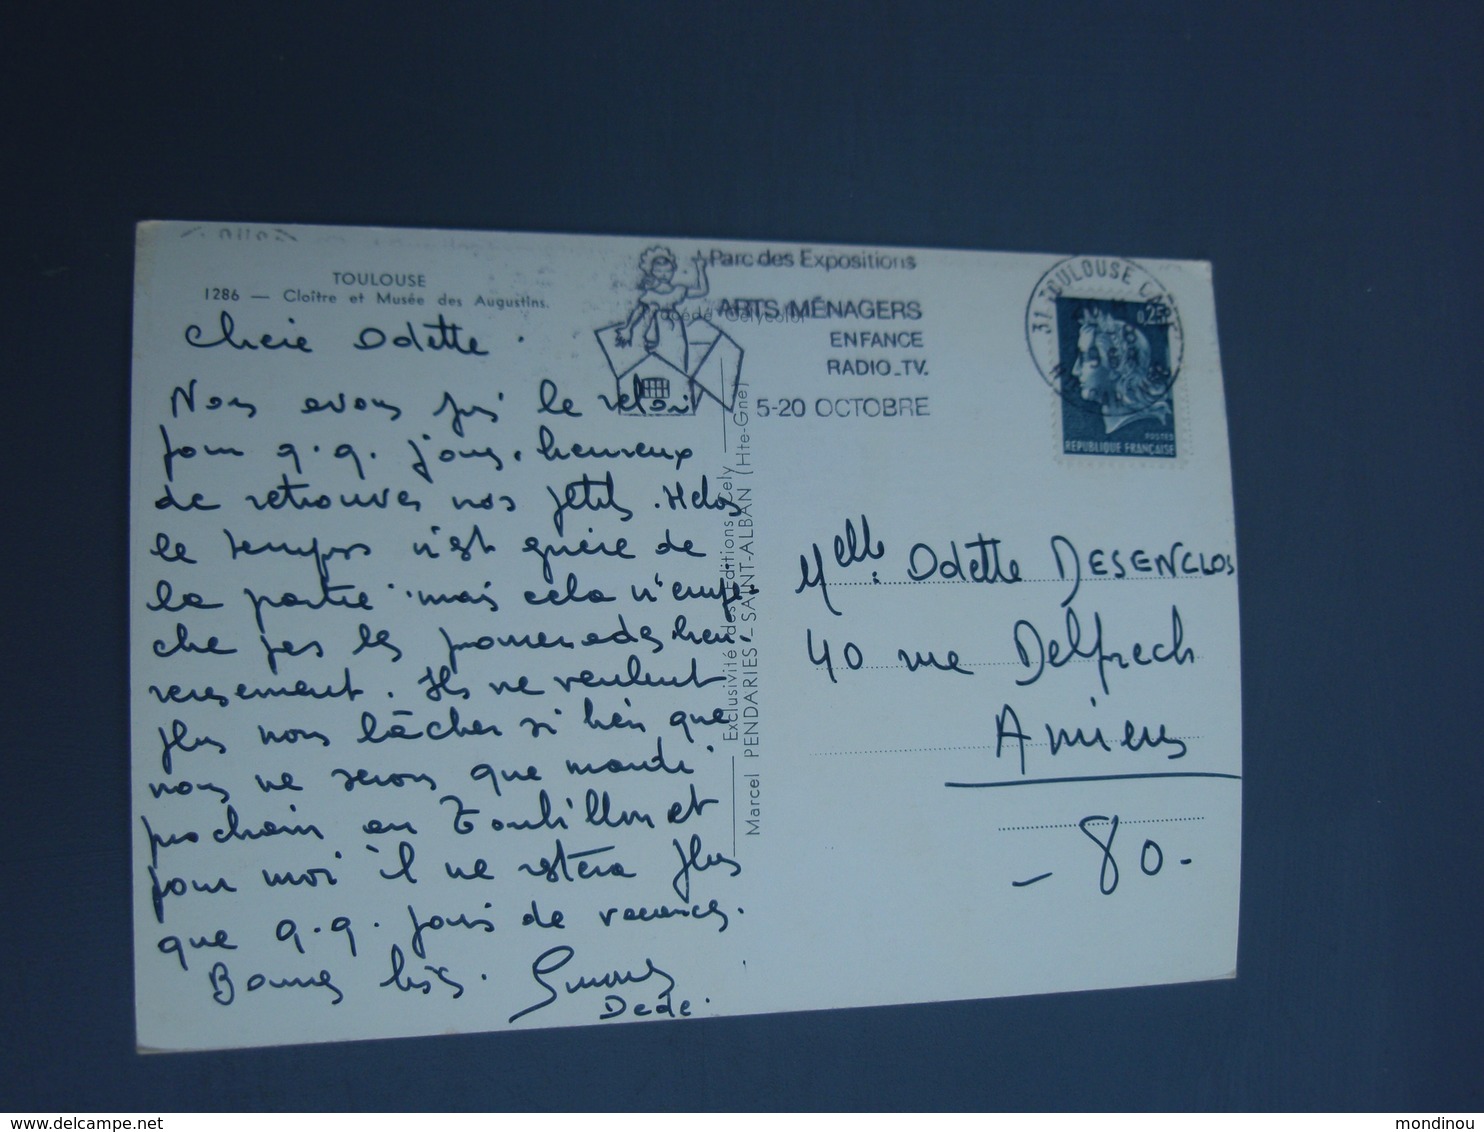 TOULOUSE
1286 — Cloître et Musée des Augustins.
Chère Odette.
Nous avons pris le relai
pour q.q. jours. heureux
de retrouver nos petits. Helas
le temps n'est guère de
la partie. mais cela n'empe-
che pas les promenades heu-
reusement. Ils ne veulent
plus nous lâcher si bien que
nous ne serons que mardi
prochain en
pour moi il ne restera plus
que q.q. jours de vacances.
Bonnes bises.
Dédé.
Exclusivité des Editions Cely
Marcel PENDARIES - SAINT-ALBAN (Hte-Gne)
Parc des Expositions
ARTS MÉNAGERS
ENFANCE
RADIO-TV.
5-20 OCTOBRE
31 TOULOUSE GARE
1968
0,25
POSTES
REPUBLIQUE FRANÇAISE
Melle Odette DESENCLOS
40 rue Delpech
Amiens
- 80 -
delcampe.net
mondinou